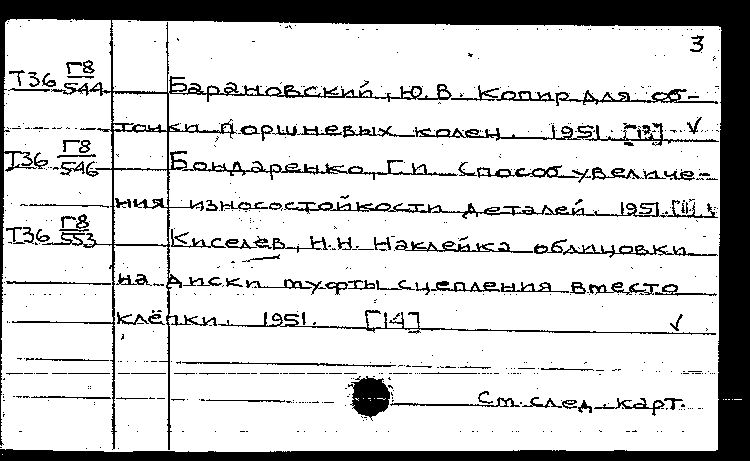 3
Т36 Г8/544 Барановский, Ю.В. Копир для об-
точки поршневых колец. 1951. [13] ✓
Т36 Г8/546 Бондаренко, Г.И. Способ увеличе-
ния износостойкости деталей. 1951.
Т36 Г8/553 Киселев, Н.Н. Наклейка облицовки
на диски муфты сцепления вместо
клёпки. 1951. [14] ✓
См. след. карт.